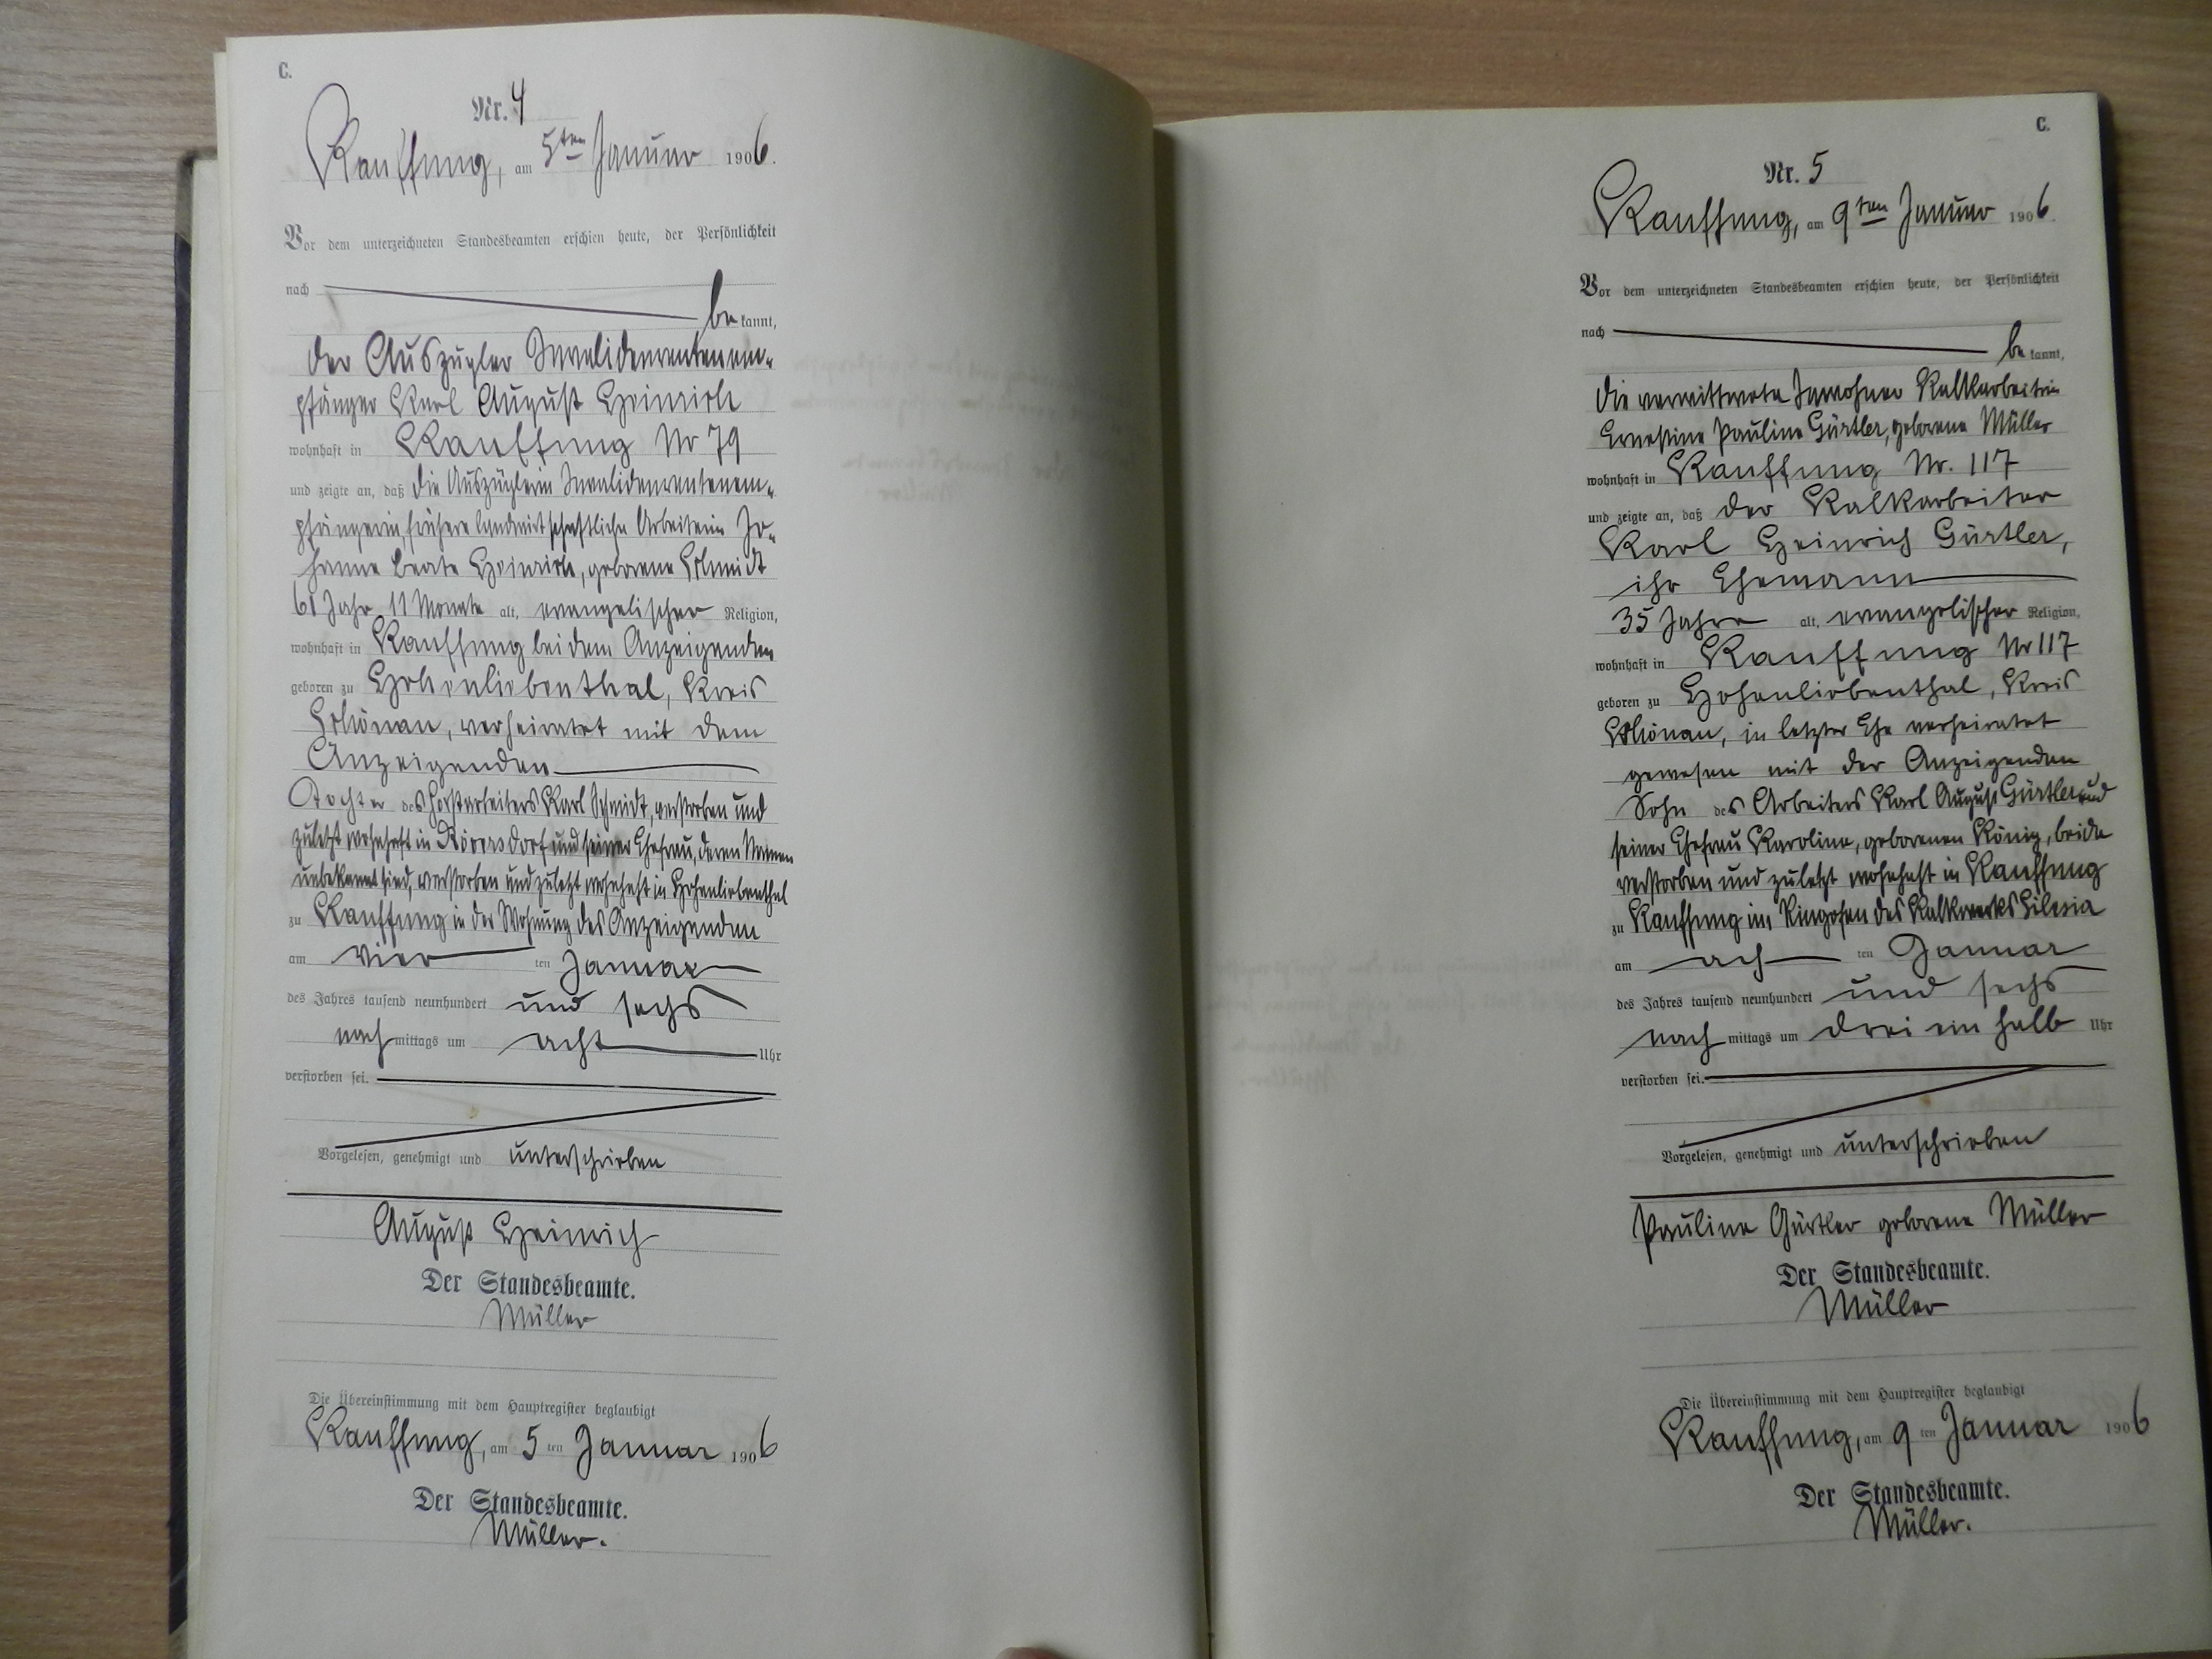 C.
Nr. 4
Kauffung, am 5ten Januar 1906.
Vor dem unterzeichneten Standesbeamten erschien heute, der Persönlichkeit
nach be kannt,
der Auszügler Invalidenrentenem-
pfänger Karl August Heinrich
wohnhaft in Kauffung Nr 79
und zeigte an, daß die Auszüglerin Invalidenrentenem-
pfängerin, frühere landwirtschaftliche Arbeiterin Jo-
hanne Beate Heinrich, geborene Schmidt
61 Jahr 11 Monate alt, evangelischer Religion,
wohnhaft in Kauffung bei dem Anzeigenden
geboren zu Hohenliebenthal, Kreis
Schönau, verheiratet mit dem
Anzeigenden
Tochter des Forstarbeiters Karl Schmidt, verstorben und
zuletzt wohnhaft in Röversdorf und seiner Ehefrau, deren Namen
unbekannt sind, verstorben und zuletzt wohnhaft in Hohenliebenthal
zu Kauffung in der Wohnung des Anzeigenden
am vier ten Januar
des Jahres tausend neunhundert und sechs
nach mittags um acht Uhr
verstorben sei.
Vorgelesen, genehmigt und unterschrieben
August Heinrich
Der Standesbeamte.
Müller
Die Übereinstimmung mit dem Hauptregister beglaubigt
Kauffung, am 5 ten Januar 1906
Der Standesbeamte.
Müller.
C.
Nr. 5
Kauffung, am 9ten Januar 1906.
Vor dem unterzeichneten Standesbeamten erschien heute, der Persönlichkeit
nach be kannt,
die verwittwete Inwohner Kalkarbeiterin
Ernestine Pauline Gürtler, geborene Müller
wohnhaft in Kauffung Nr. 117
und zeigte an, daß der Kalkarbeiter
Karl Heinrich Gürtler,
ihr Ehemann
35 Jahre alt, evangelischer Religion,
wohnhaft in Kauffung Nr 117
geboren zu Hohenliebenthal, Kreis
Schönau, in letzter Ehe verheiratet
gewesen mit der Anzeigenden
Sohn des Arbeiters Karl August Gürtler und
seiner Ehefrau Karoline, geborenen König, beide
verstorben und zuletzt wohnhaft in Kauffung
zu Kauffung im Ringofen des Kalkwerks Silesia
am ach ten Januar
des Jahres tausend neunhundert und sechs
nach mittags um drei ein halb Uhr
verstorben sei.
Vorgelesen, genehmigt und unterschrieben
Pauline Gürtler geborene Müller
Der Standesbeamte.
Müller
Die Übereinstimmung mit dem Hauptregister beglaubigt
Kauffung, am 9 ten Januar 1906
Der Standesbeamte.
Müller.